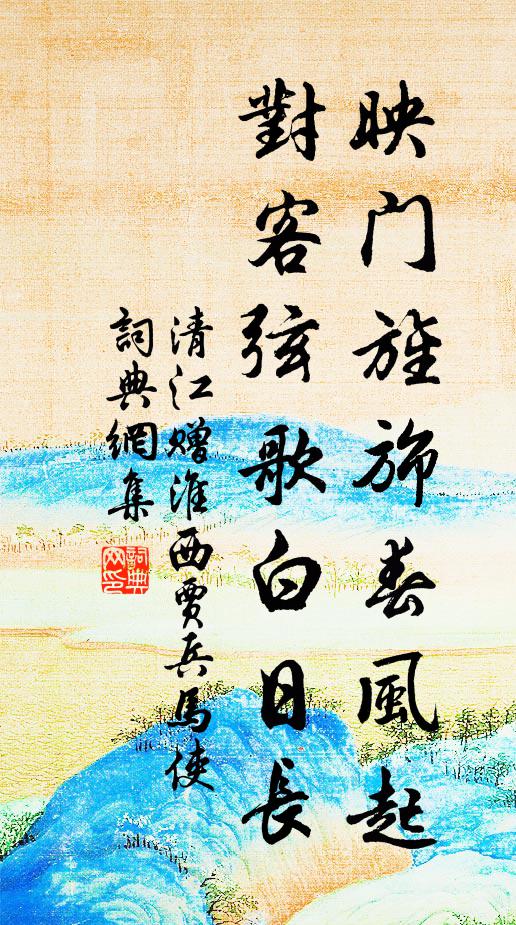 映门旌旆春風起
對客弦歌白日長
清江赠淮西賈兵馬使
詞典網集
詞典网印